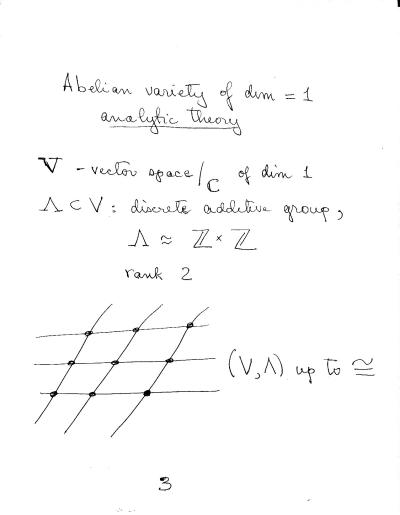 Abelian variety of dim = 1
analytic theory
V - vector space/C of dim 1
Λ ⊂ V : discrete additive group,
Λ ≈ ℤ × ℤ
rank 2
(V, Λ) up to ≅
3